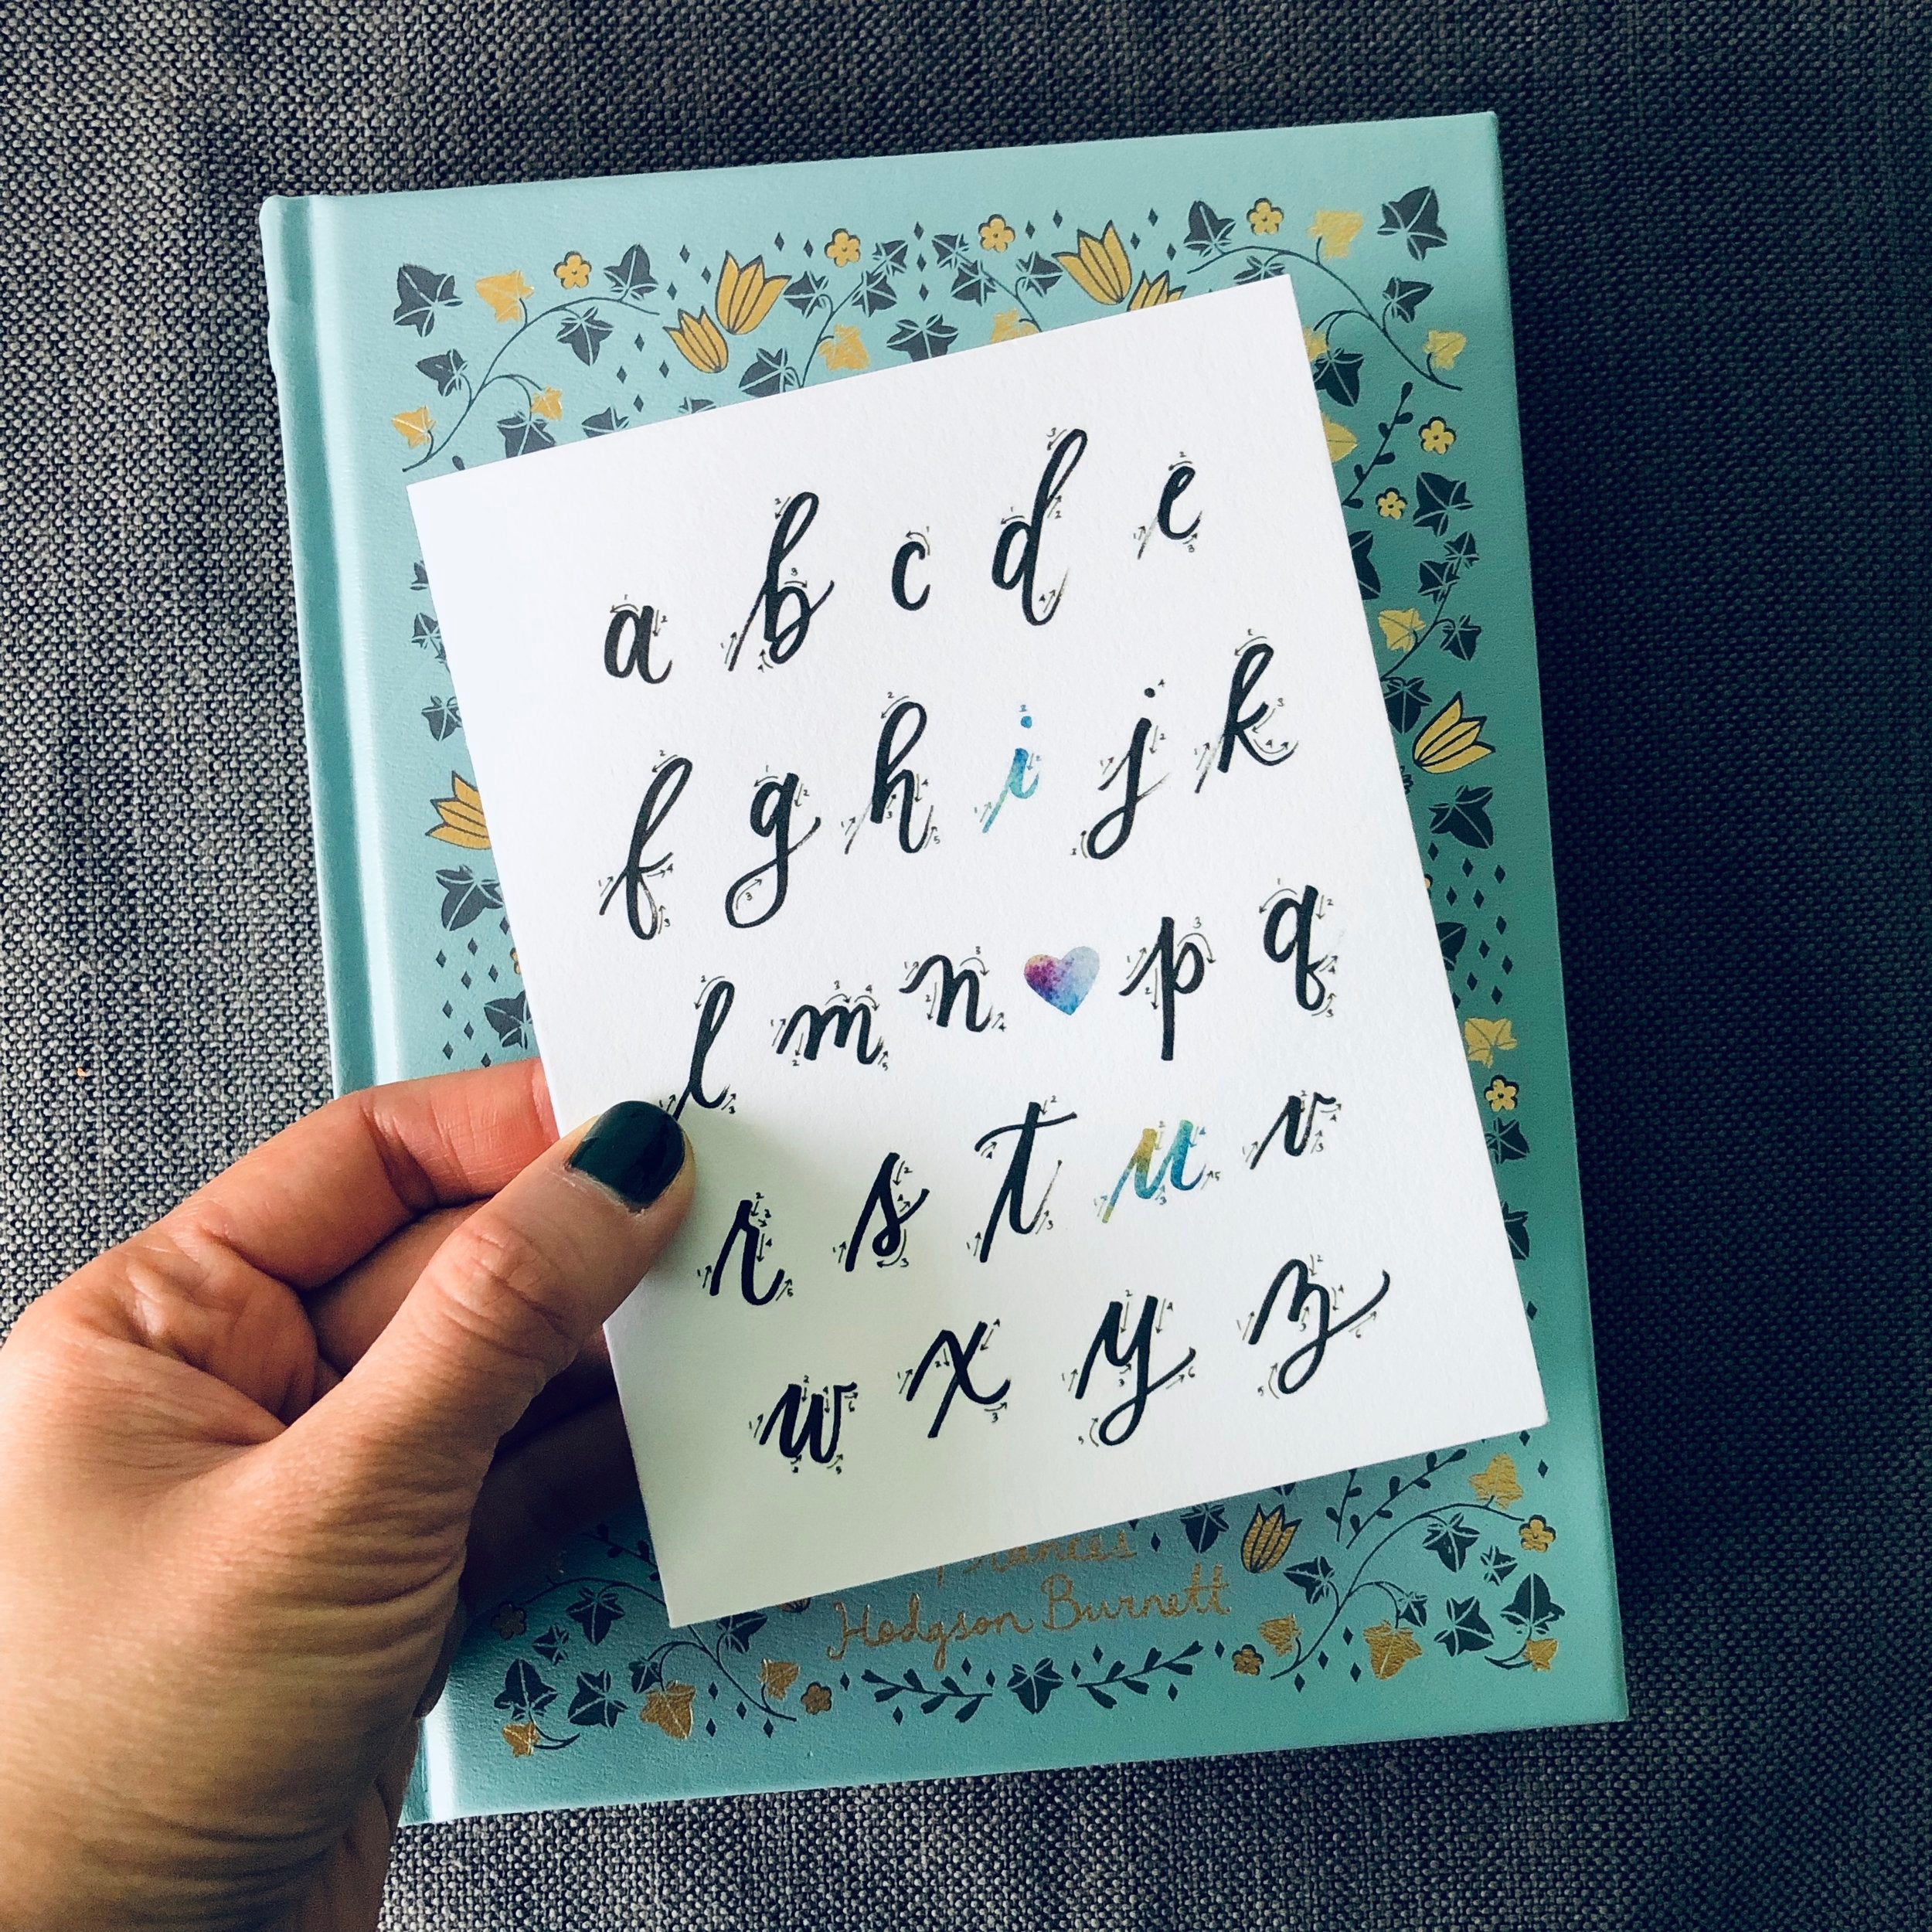 a b c d e
f g h i j k
l m n p q
r s t u v
w x y z
Frances
Hodgson Burnett